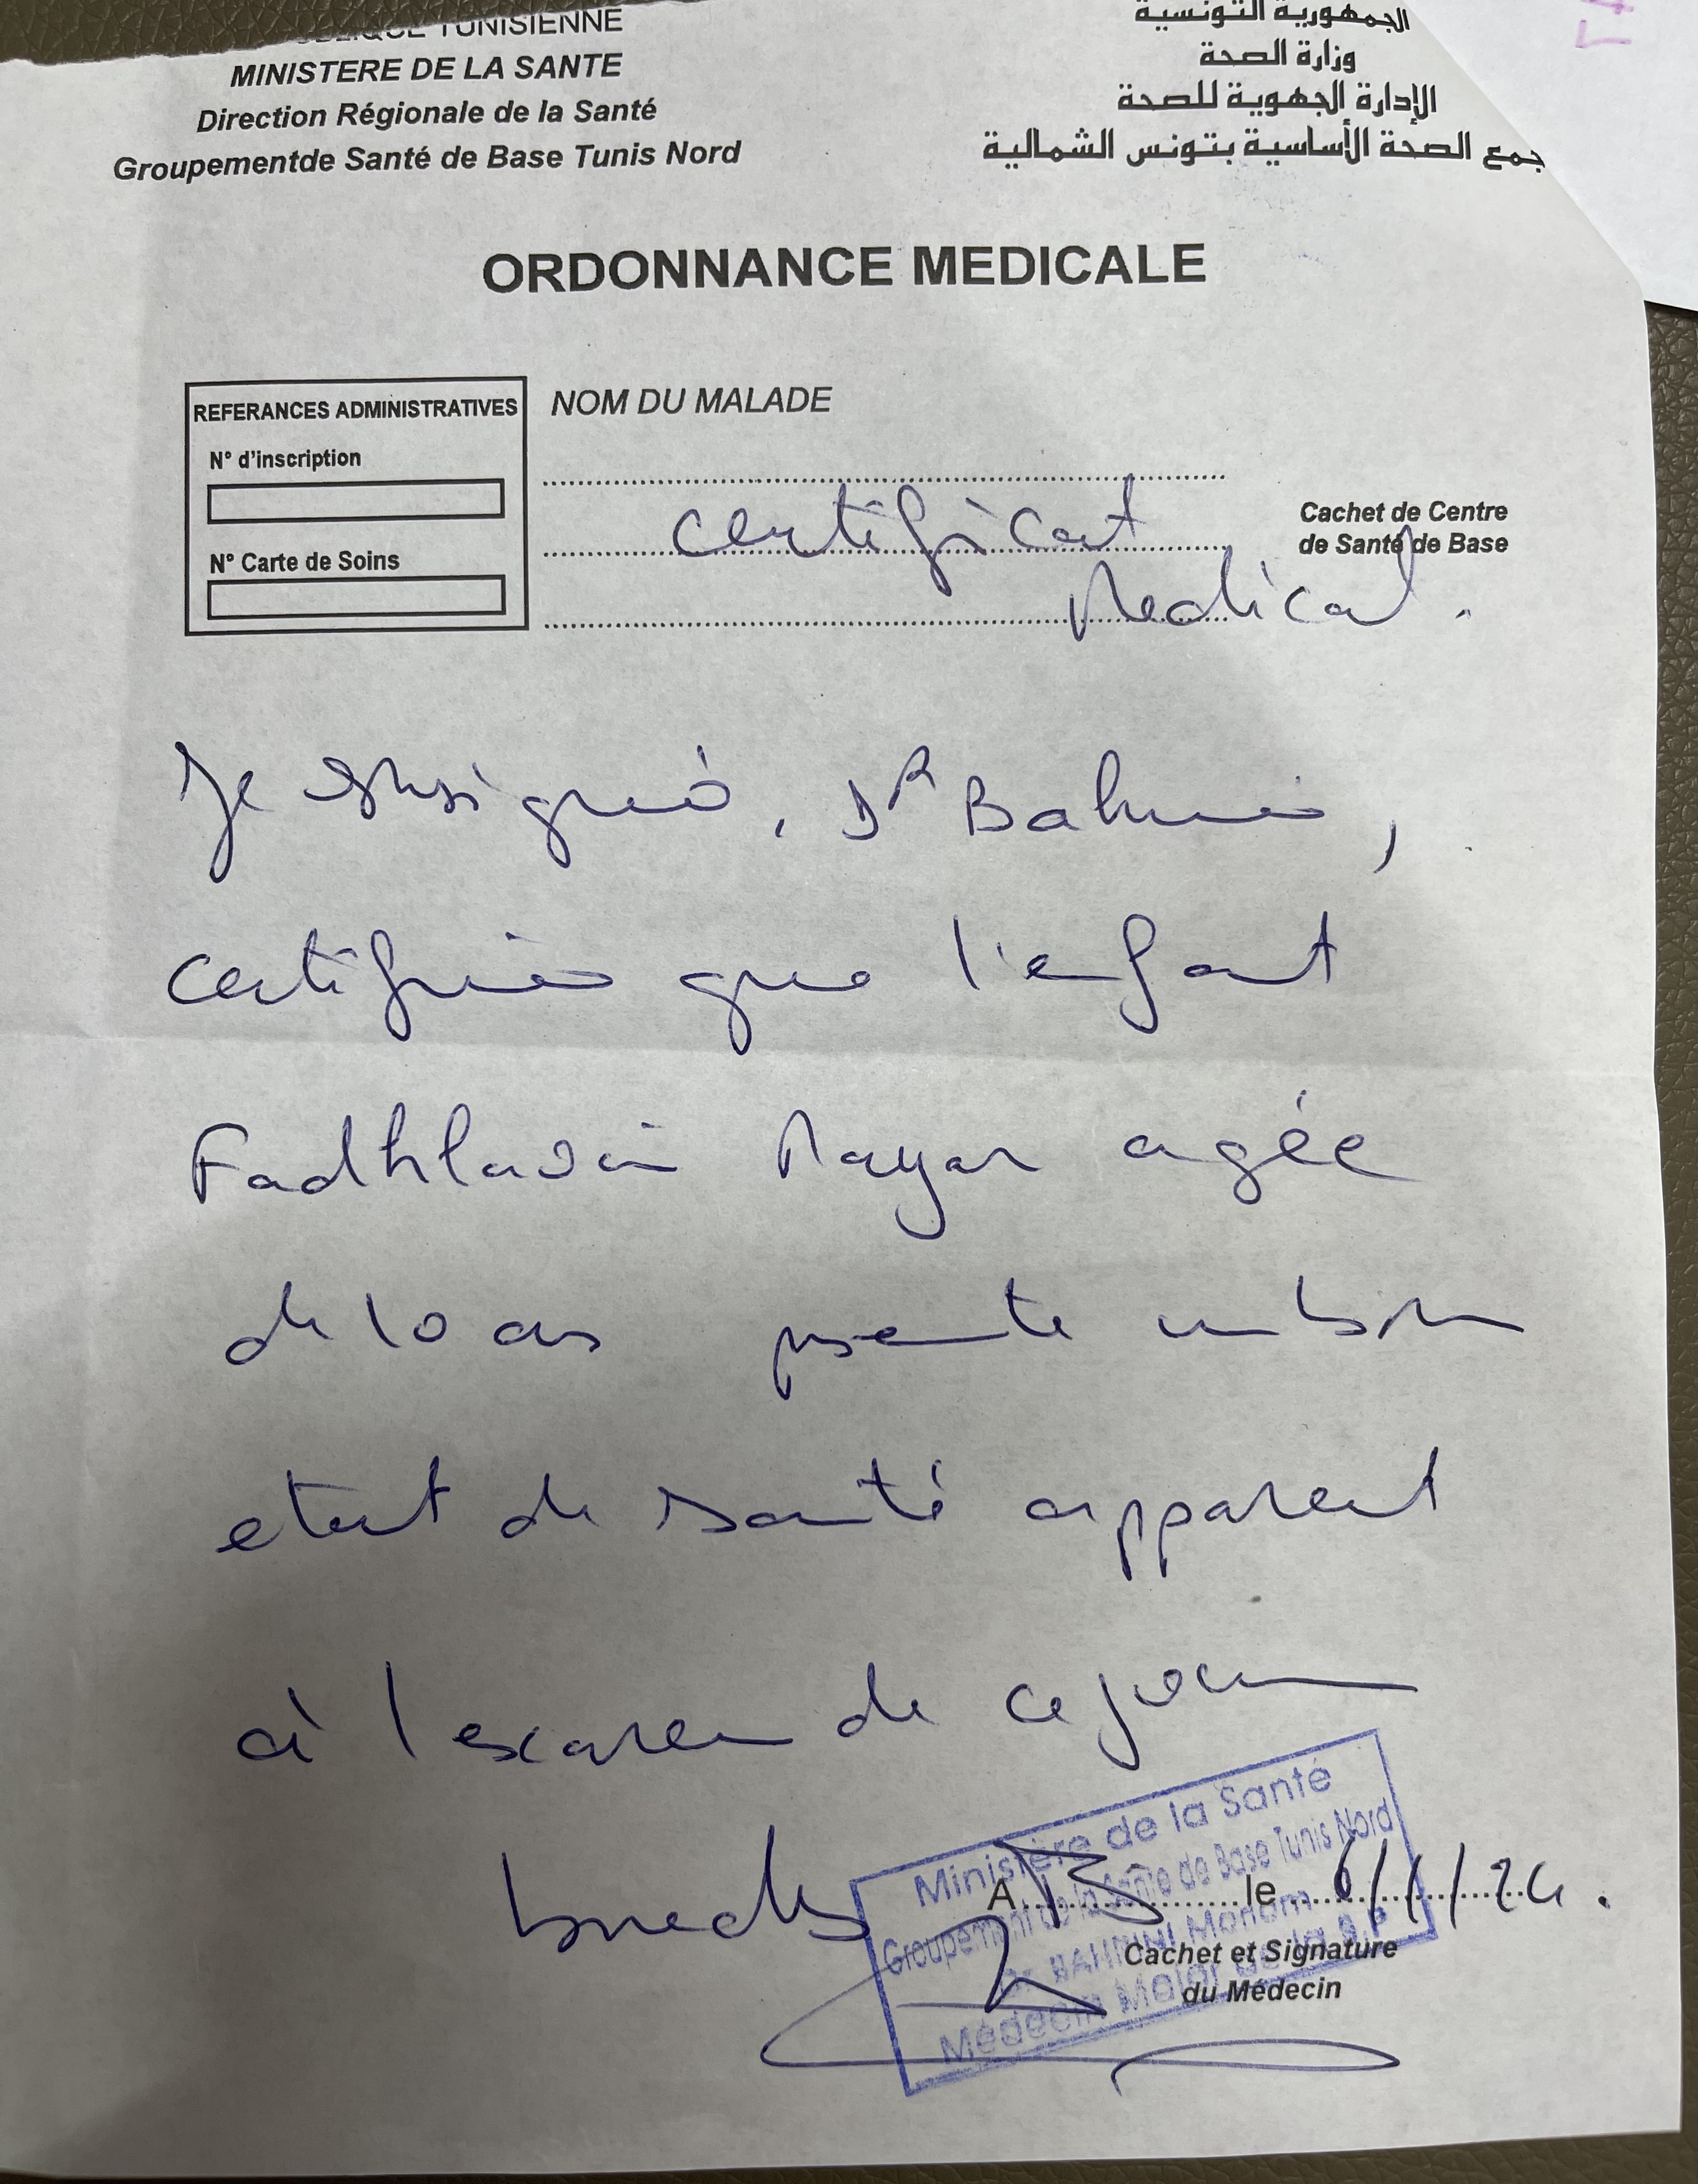 TUNISIENNE
MINISTERE DE LA SANTE
Direction Régionale de la Santé
Groupementde Santé de Base Tunis Nord
الجمهورية التونسية
وزارة الصحة
الإدارة الجهوية للصحة
جمع الصحة الأساسية بتونس الشمالية
ORDONNANCE MEDICALE
REFERANCES ADMINISTRATIVES
N° d'inscription
N° Carte de Soins
NOM DU MALADE
Cachet de Centre
de Santé de Base
certificat
Medical.
Je soussigné, Dr
certifie que l'enfant
agée
de 10 ans présente un bon
etat de santé apparent
à l'examen de ce jour
Ministère de la Santé
Groupement de la Santé de Base Tunis Nord
A le 6/1/24.
Cachet et Signature
du Médecin
Médecin Major de la S.P